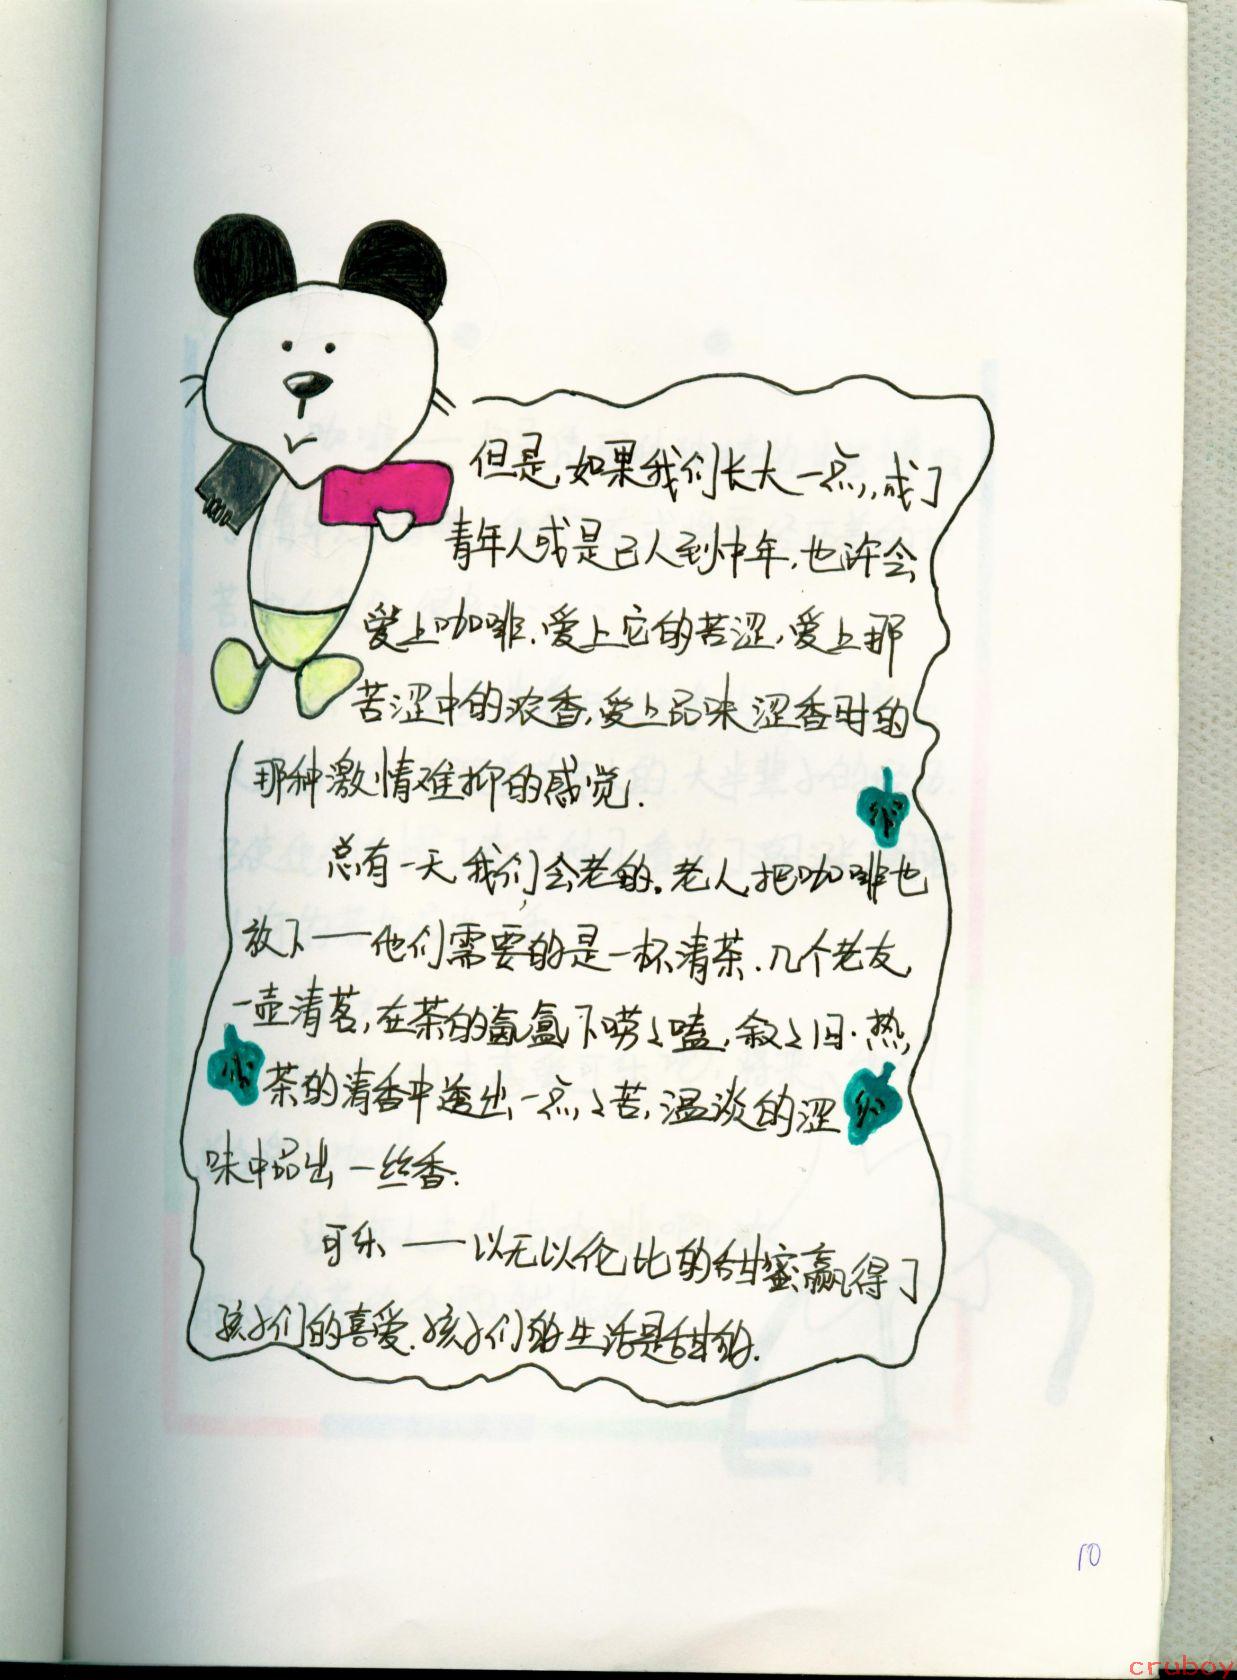 但是,如果我们长大一点,成了
青年人或是已人到中年,也许会
爱上咖啡.爱上它的苦涩,爱上那
苦涩中的浓香,爱上品味涩香时的
那种激情难抑的感觉.
总有一天,我们会老的。老人把咖啡也
放下——他们需要的是一杯清茶.几个老友,
一壶清茗,在茶的氤氲下唠々嗑,叙々旧.热
茶的清香中透出一点々苦,温淡的涩
味中品出一丝香.
可乐——以无以伦比的甜蜜赢得了
孩子们的喜爱.孩子们的生活是甜的.
10
cruboy